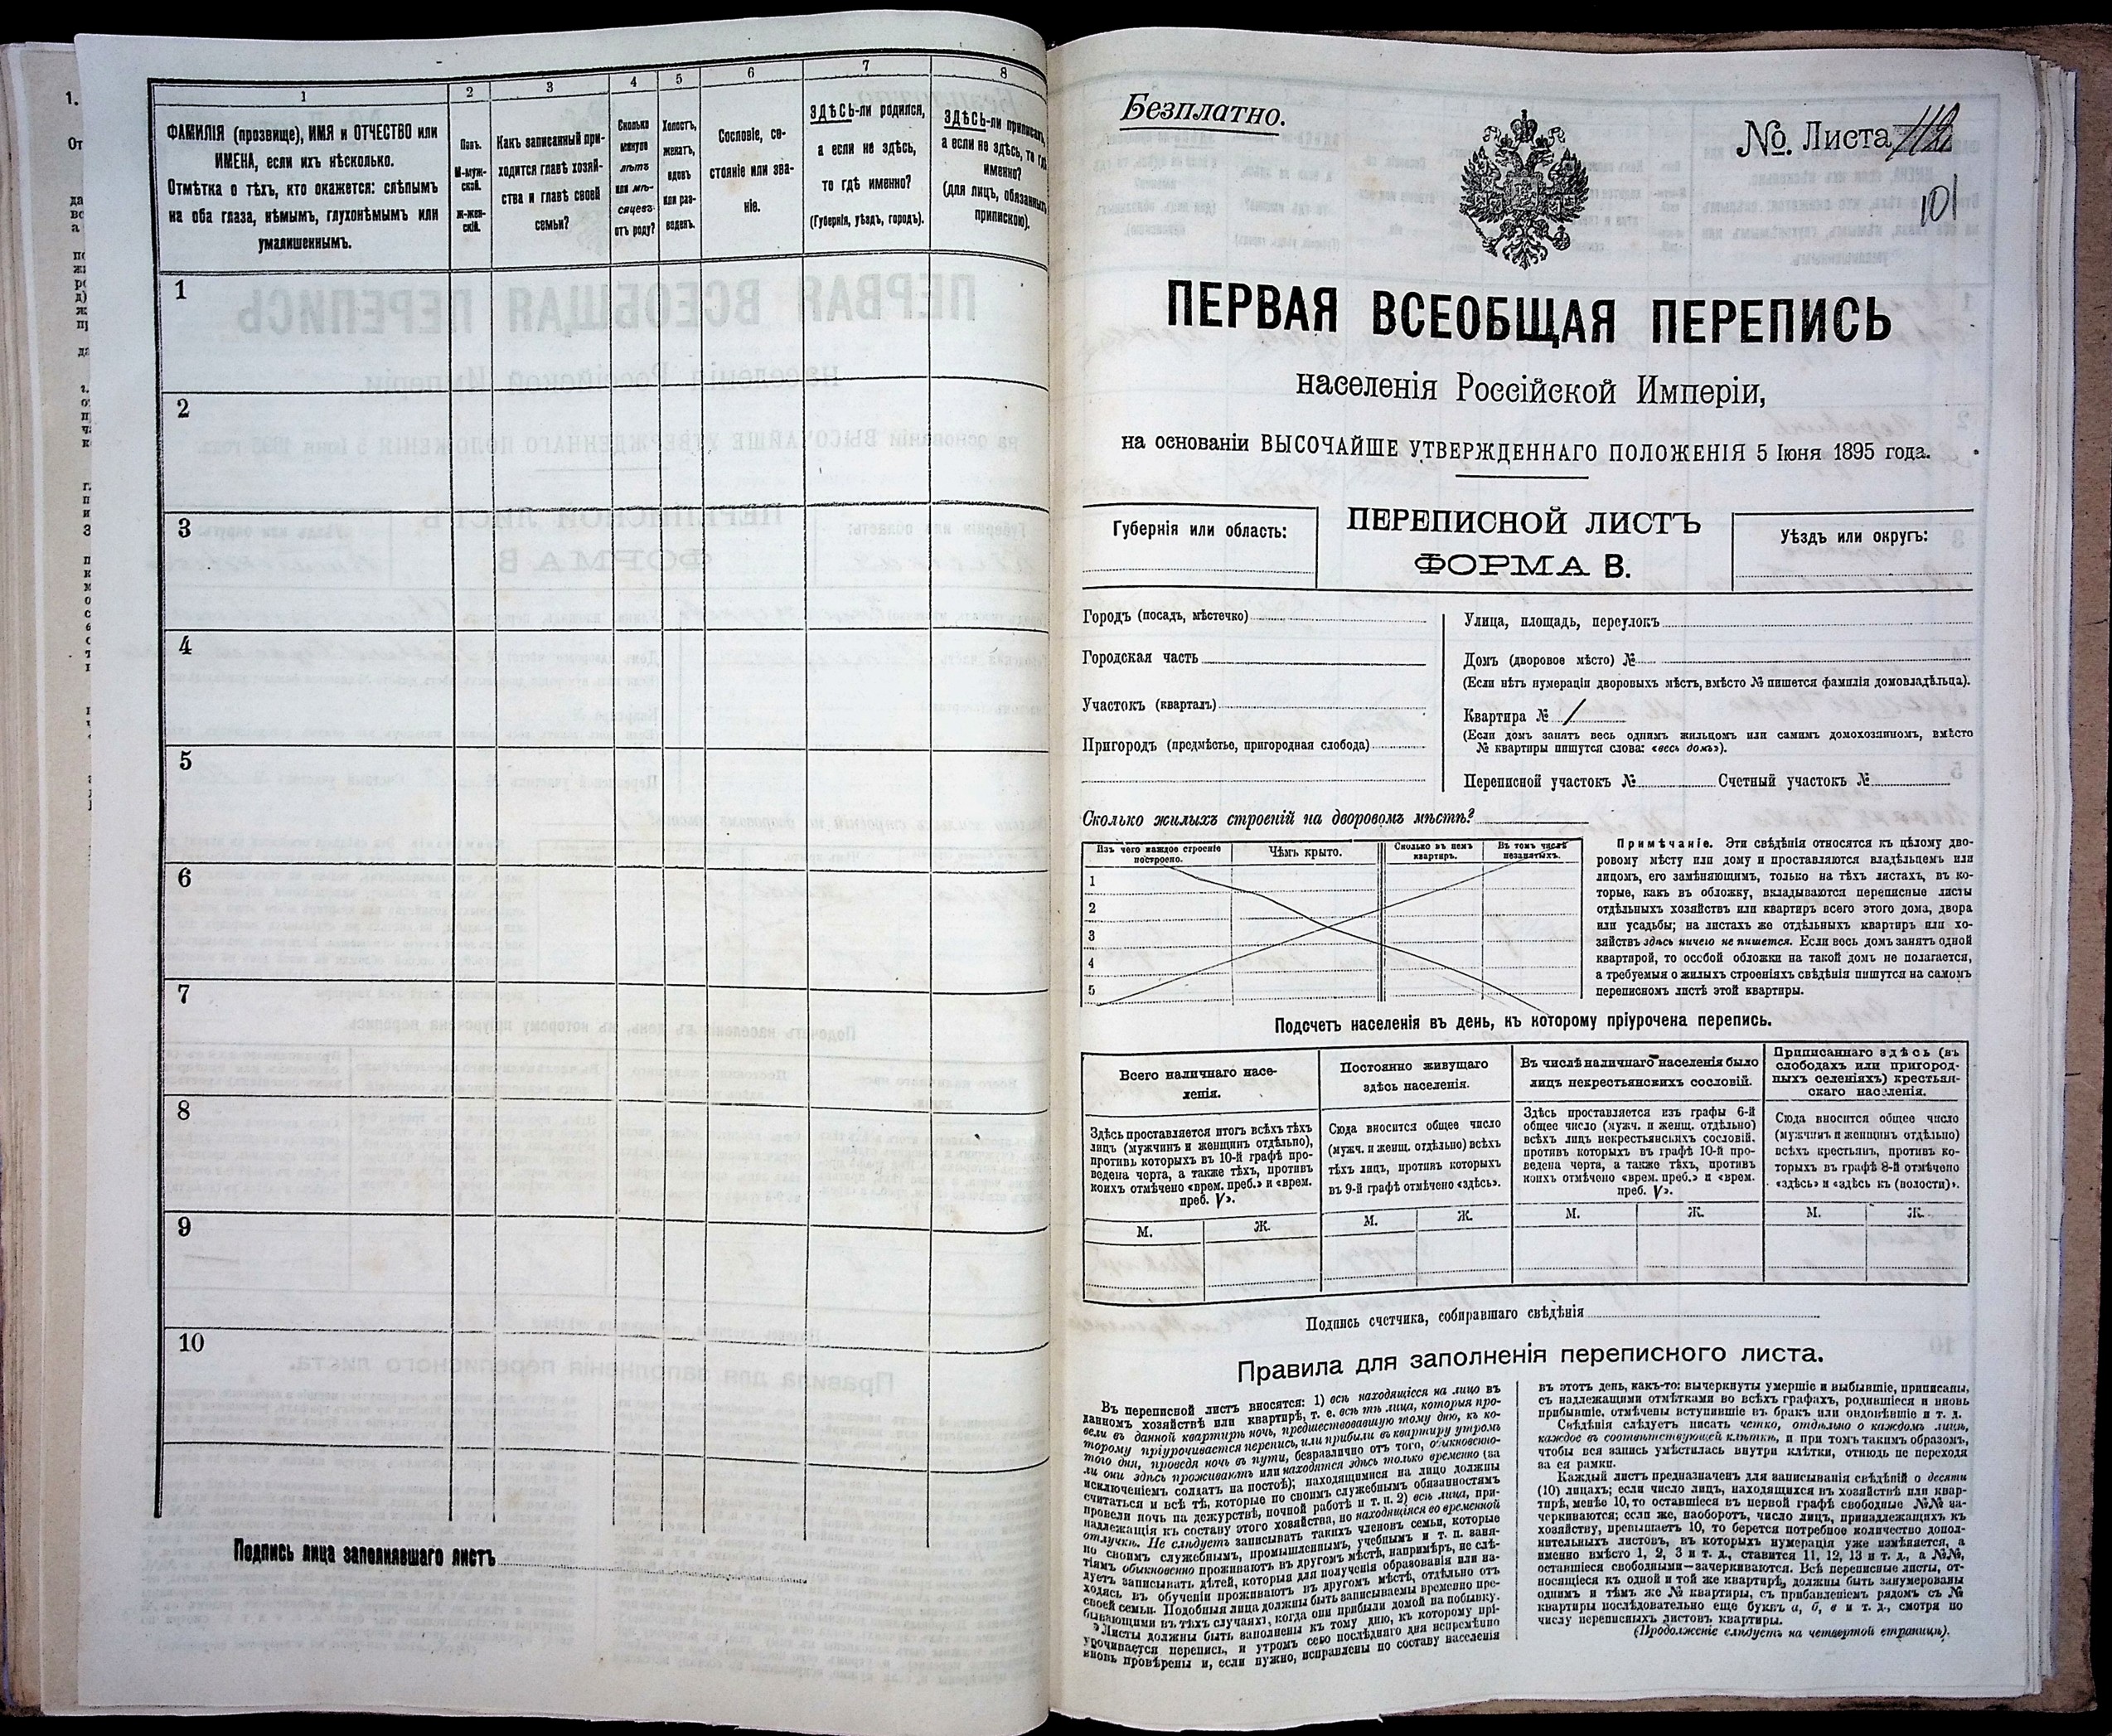 1
2
3
4
5
6
7
8
ФАМИЛІЯ (прозвище), ИМЯ и ОТЧЕСТВО или
ИМЕНА, если ихъ нѣсколько.
Отмѣтка о тѣхъ, кто окажется: слѣпымъ
на оба глаза, нѣмымъ, глухонѣмымъ или
умалишеннымъ.
Полъ.
М-муж-
ской.
Ж-жен-
скій.
Какъ записанный при-
ходится главѣ хозяй-
ства и главѣ своей
семьи?
Сколько
минуло
лѣтъ
или мѣ-
сяцевъ
отъ роду?
Холостъ,
женатъ,
вдовъ
или раз-
веденъ.
Сословіе, со-
стояніе или зва-
ніе.
ЗДѢСЬ-ли родился,
а если не здѣсь,
то гдѣ именно?
(Губернія, уѣздъ, городъ).
ЗДѢСЬ-ли приписанъ,
а если не здѣсь, то гдѣ
именно?
(для лицъ, обязанныхъ
припискою).
1
2
3
4
5
6
7
8
9
10
Подпись лица заполнявшаго листъ
Безплатно.
№ Листа
101
ПЕРВАЯ ВСЕОБЩАЯ ПЕРЕПИСЬ
населенія Россійской Имперіи,
на основаніи ВЫСОЧАЙШЕ УТВЕРЖДЕННАГО ПОЛОЖЕНІЯ 5 Іюня 1895 года.
Губернія или область:
ПЕРЕПИСНОЙ ЛИСТЪ
ФОРМА В.
Уѣздъ или округъ:
Городъ (посадъ, мѣстечко)
Городская часть
Участокъ (кварталъ)
Пригородъ (предмѣстье, пригородная слобода)
Улица, площадь, переулокъ
Домъ (дворовое мѣсто) №
(Если нѣтъ нумераціи дворовыхъ мѣстъ, вмѣсто № пишется фамилія домовладѣльца).
Квартира № /
(Если домъ занятъ весь однимъ жильцомъ или самимъ домохозяиномъ, вмѣсто
№ квартиры пишутся слова: «весь домъ»).
Переписной участокъ № Счетный участокъ №
Сколько жилыхъ строеній на дворовомъ мѣстѣ?
Изъ чего каждое строеніе
построено.
Чѣмъ крыто.
Сколько въ немъ
квартиръ.
Въ томъ числѣ
незанятыхъ.
1
2
3
4
5
Примѣчаніе. Эти свѣдѣнія относятся къ цѣлому дво-
ровому мѣсту или дому и проставляются владѣльцемъ или
лицомъ, его замѣняющимъ, только на тѣхъ листахъ, въ ко-
торые, какъ въ обложку, вкладываются переписные листы
отдѣльныхъ хозяйствъ или квартиръ всего этого дома, двора
или усадьбы; на листахъ же отдѣльныхъ квартиръ или хо-
зяйствъ здѣсь ничего не пишется. Если весь домъ занятъ одной
квартирой, то особой обложки на такой домъ не полагается,
а требуемыя о жилыхъ строеніяхъ свѣдѣнія пишутся на самомъ
переписномъ листѣ этой квартиры.
Подсчетъ населенія въ день, къ которому пріурочена перепись.
Всего наличнаго насе-
ленія.
Здѣсь проставляется итогъ всѣхъ тѣхъ
лицъ (мужчинъ и женщинъ отдѣльно),
противъ которыхъ въ 10-й графѣ про-
ведена черта, а также тѣхъ, противъ
коихъ отмѣчено «врем. преб.» и «врем.
преб. V».
М.
Ж.
Постоянно живущаго
здѣсь населенія.
Сюда вносится общее число
(мужч. и женщ. отдѣльно) всѣхъ
тѣхъ лицъ, противъ которыхъ
въ 9-й графѣ отмѣчено «здѣсь».
М.
Ж.
Въ числѣ наличнаго населенія было
лицъ некрестьянскихъ сословій.
Здѣсь проставляется изъ графы 6-й
общее число (мужч. и женщ. отдѣльно)
всѣхъ лицъ некрестьянскихъ сословій.
противъ которыхъ въ графѣ 10-й про-
ведена черта, а также тѣхъ, противъ
коихъ отмѣчено «врем. преб.» и «врем.
преб. V».
М.
Ж.
Приписаннаго здѣсь (въ
слободахъ или пригород-
ныхъ селеніяхъ) крестьян-
скаго населенія.
Сюда вносится общее число
(мужчинъ и женщинъ отдѣльно)
всѣхъ крестьянъ, противъ ко-
торыхъ въ графѣ 8-й отмѣчено
«здѣсь» и «здѣсь къ (волости)».
М.
Ж.
Подпись счетчика, собиравшаго свѣдѣнія
Правила для заполненія переписного листа.
Въ переписной листъ вносятся: 1) всѣ находящіеся на лицо въ
данномъ хозяйствѣ или квартирѣ, т. е. всѣ тѣ лица, которыя про-
вели въ данной квартирѣ ночь, предшествовавшую тому дню, къ ко-
торому пріурочивается перепись, или прибыли въ квартиру утромъ
того дня, проведя ночь въ пути, безразлично отъ того, обыкновенно-
ли они здѣсь проживаютъ или находятся здѣсь только временно (за
исключеніемъ солдатъ на постоѣ); находящимися на лицо должны
считаться и всѣ тѣ, которые по своимъ служебнымъ обязанностямъ
провели ночь на дежурствѣ, ночной работѣ и т. п. 2) всѣ лица, при-
надлежащія къ составу этого хозяйства, но находящіяся во временной
отлучкѣ. Не слѣдуетъ записывать такихъ членовъ семьи, которые
по своимъ служебнымъ, промышленнымъ, учебнымъ и т. п. заня-
тіямъ обыкновенно проживаютъ въ другомъ мѣстѣ, напримѣръ, не слѣ-
дуетъ записывать дѣтей, которыя для полученія образованія или на-
ходясь въ обученіи проживаютъ въ другомъ мѣстѣ, отдѣльно отъ
своей семьи. Подобныя лица должны быть записываемы временно пре-
бывающими въ тѣхъ случаяхъ, когда они прибыли домой на побывку.
Листы должны быть заполнены къ тому дню, къ которому прі-
урочивается перепись, и утромъ сего послѣдняго дня непремѣнно
вновь провѣрены и, если нужно, исправлены по составу населенія
въ этотъ день, какъ-то: вычеркнуты умершіе и выбывшіе, приписаны,
съ надлежащими отмѣтками во всѣхъ графахъ, родившіеся и вновь
прибывшіе, отмѣчены вступившіе въ бракъ или овдовѣвшіе и т. д.
Свѣдѣнія слѣдуетъ писать четко, отдѣльно о каждомъ лицѣ,
каждое въ соотвѣтствующей клѣткѣ, и при томъ такимъ образомъ,
чтобы вся запись умѣстилась внутри клѣтки, отнюдь не переходя
за ея рамки.
Каждый листъ предназначенъ для записыванія свѣдѣній о десяти
(10) лицахъ; если число лицъ, находящихся въ хозяйствѣ или квар-
тирѣ, менѣе 10, то оставшіеся въ первой графѣ свободные №№ за-
черкиваются; если же, наоборотъ, число лицъ, принадлежащихъ къ
хозяйству, превышаетъ 10, то берется потребное количество допол-
нительныхъ листовъ, въ которыхъ нумерація уже измѣняется, а
именно вмѣсто 1, 2, 3 и т. д., ставится 11, 12, 13 и т. д., а №№,
оставшіеся свободными—зачеркиваются. Всѣ переписные листы, от-
носящіеся къ одной и той же квартирѣ, должны быть занумерованы
однимъ и тѣмъ же № квартиры, съ прибавленіемъ рядомъ съ №
квартиры послѣдовательно еще буквъ а, б, в и т. д., смотря по
числу переписныхъ листовъ квартиры.
(Продолженіе слѣдуетъ на четвертой страницѣ).